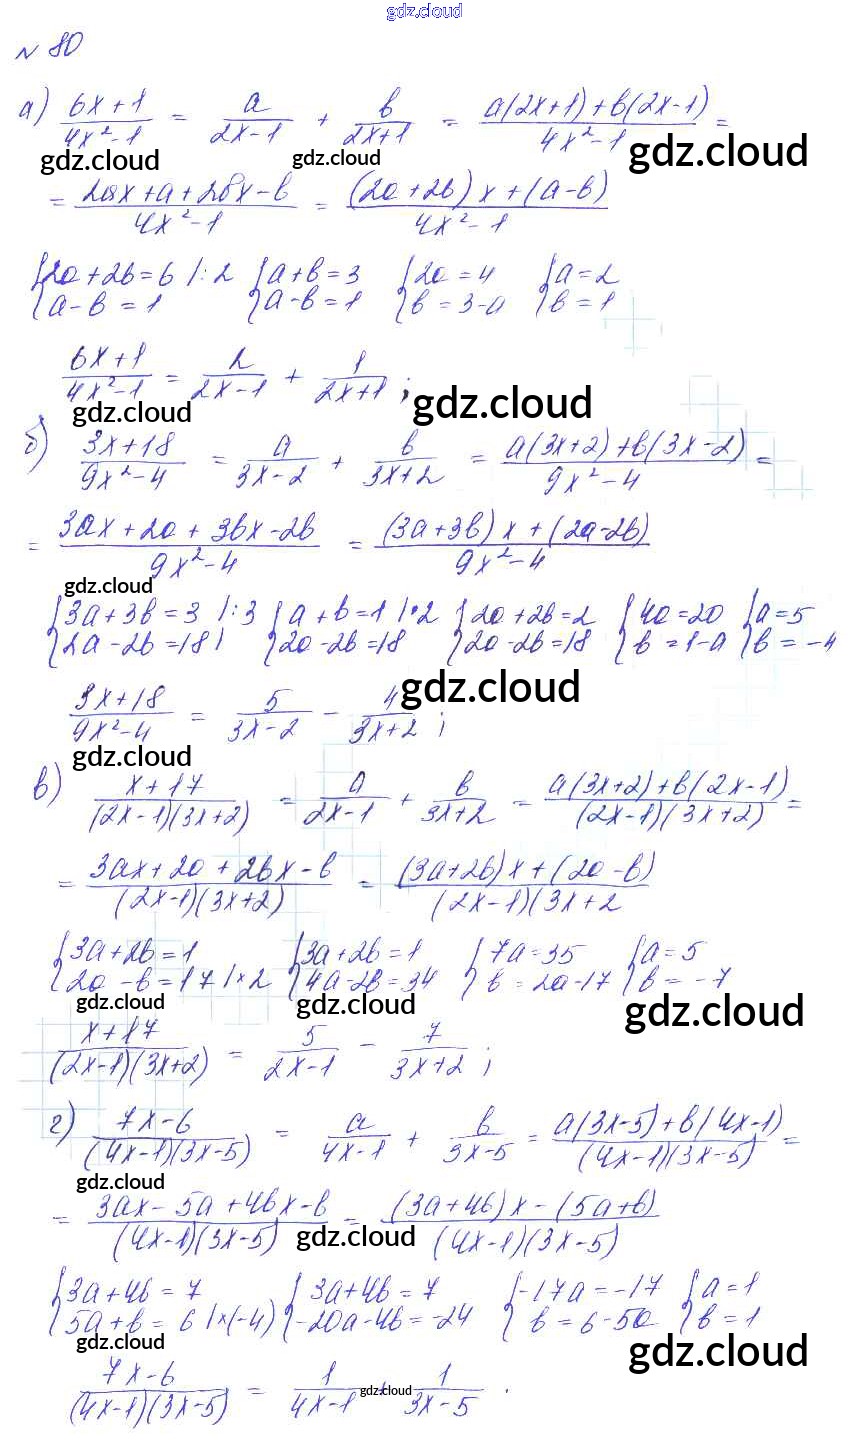 gdz.cloud
№ 80
а) (6x+1)/(4x²-1) = a/(2x-1) + b/(2x+1) = (a(2x+1)+b(2x-1))/(4x²-1) =
gdz.cloud gdz.cloud gdz.cloud
= (2ax+a+2bx-b)/(4x²-1) = ((2a+2b)x+(a-b))/(4x²-1)
{2a+2b=6 |:2 {a+b=3 {2a=4 {a=2
{a-b=1 {a-b=1 {b=3-a {b=1
(6x+1)/(4x²-1) = 2/(2x-1) + 1/(2x+1) ;
gdz.cloud gdz.cloud
б) (3x+18)/(9x²-4) = a/(3x-2) + b/(3x+2) = (a(3x+2)+b(3x-2))/(9x²-4) =
= (3ax+2a+3bx-2b)/(9x²-4) = ((3a+3b)x+(2a-2b))/(9x²-4)
gdz.cloud
{3a+3b=3 |:3 {a+b=1 |·2 {2a+2b=2 {4a=20 {a=5
{2a-2b=18 | {2a-2b=18 {2a-2b=18 {b=1-a {b=-4
(3x+18)/(9x²-4) = 5/(3x-2) - 4/(3x+2) ;
gdz.cloud gdz.cloud
в) (x+17)/((2x-1)(3x+2)) = a/(2x-1) + b/(3x+2) = (a(3x+2)+b(2x-1))/((2x-1)(3x+2)) =
= (3ax+2a+2bx-b)/((2x-1)(3x+2)) = ((3a+2b)x+(2a-b))/((2x-1)(3x+2
{3a+2b=1 {3a+2b=1 {7a=35 {a=5
{2a-b=17 |×2 {4a-2b=34 {b=2a-17 {b=-7
gdz.cloud gdz.cloud gdz.cloud
(x+17)/((2x-1)(3x+2)) = 5/(2x-1) - 7/(3x+2) ;
г) (7x-6)/((4x-1)(3x-5)) = a/(4x-1) + b/(3x-5) = (a(3x-5)+b(4x-1))/((4x-1)(3x-5)) =
gdz.cloud
= (3ax-5a+4bx-b)/((4x-1)(3x-5)) = ((3a+4b)x-(5a+b))/((4x-1)(3x-5))
gdz.cloud
{3a+4b=7 {3a+4b=7 {-17a=-17 {a=1
{5a+b=6 |×(-4) {-20a-4b=-24 {b=6-5a {b=1
gdz.cloud gdz.cloud
(7x-6)/((4x-1)(3x-5)) = 1/(4x-1) + 1/(3x-5) .
gdz.cloud